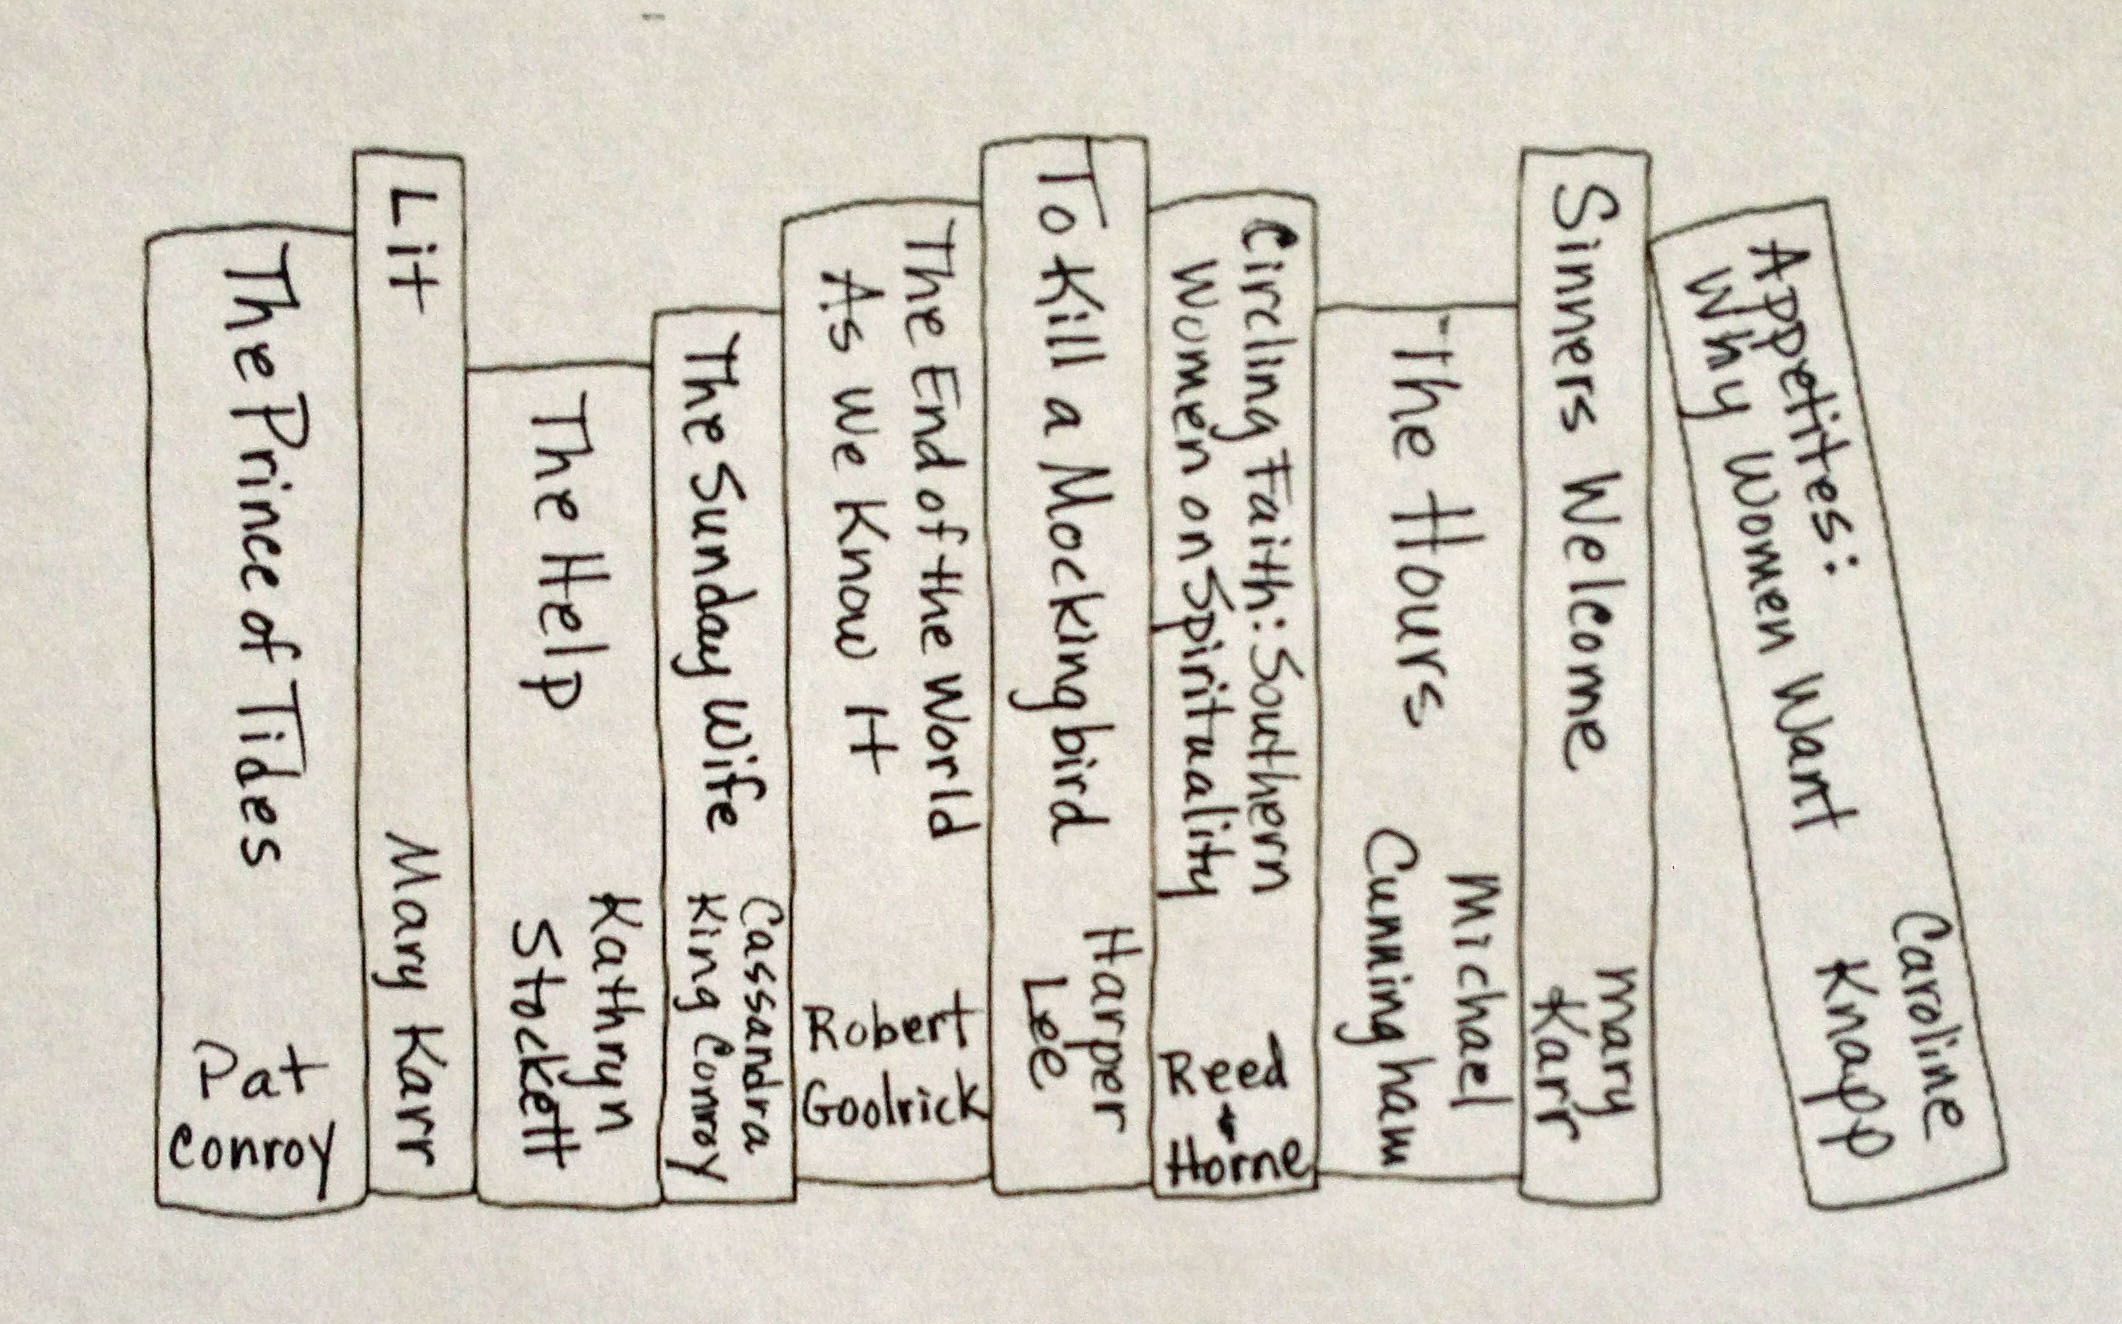 The Prince of Tides
Pat
Conroy
Lit
Mary Karr
The Help
Kathryn
Stockett
The Sunday Wife
Cassandra
King Conroy
The End of the World
As We Know It
Robert
Goolrick
To Kill a Mockingbird
Harper
Lee
Circling Faith: Southern
Women on Spirituality
Reed
+
Horne
The Hours
Michael
Cunningham
Sinners Welcome
Mary
Karr
Appetites:
Why Women Want
Caroline
Knapp